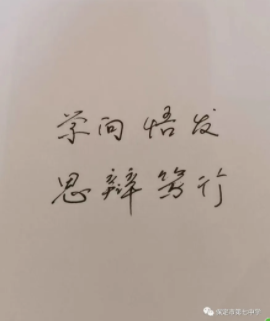 学问悟发
思辩笃行
保定市第七中学